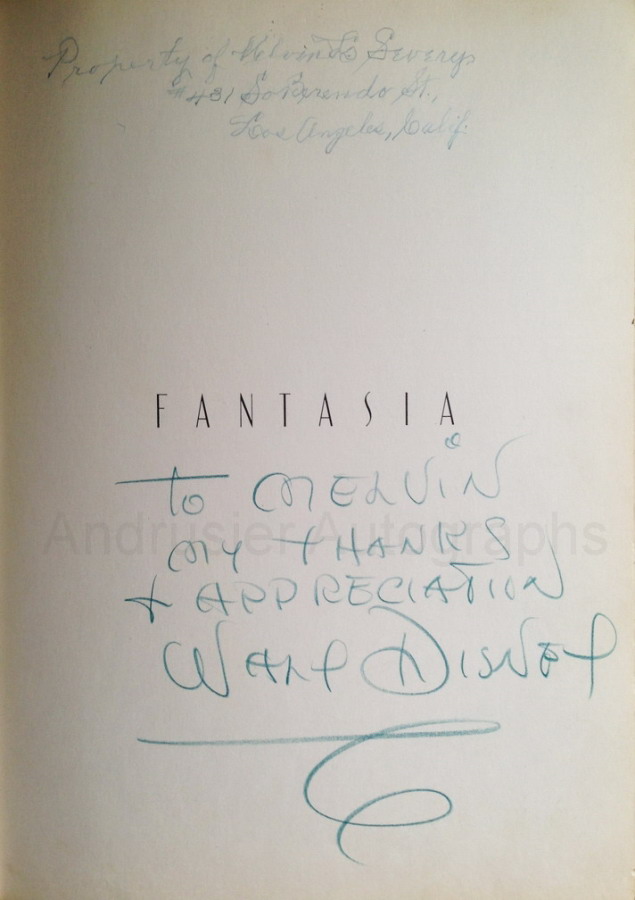 Property of Melvin L. Severy
#431 So Berendo St.,
Los Angeles, Calif.
FANTASIA
TO MELVIN
Andrusier Autographs
MY THANKS
+ APPRECIATION
WALT DISNEY